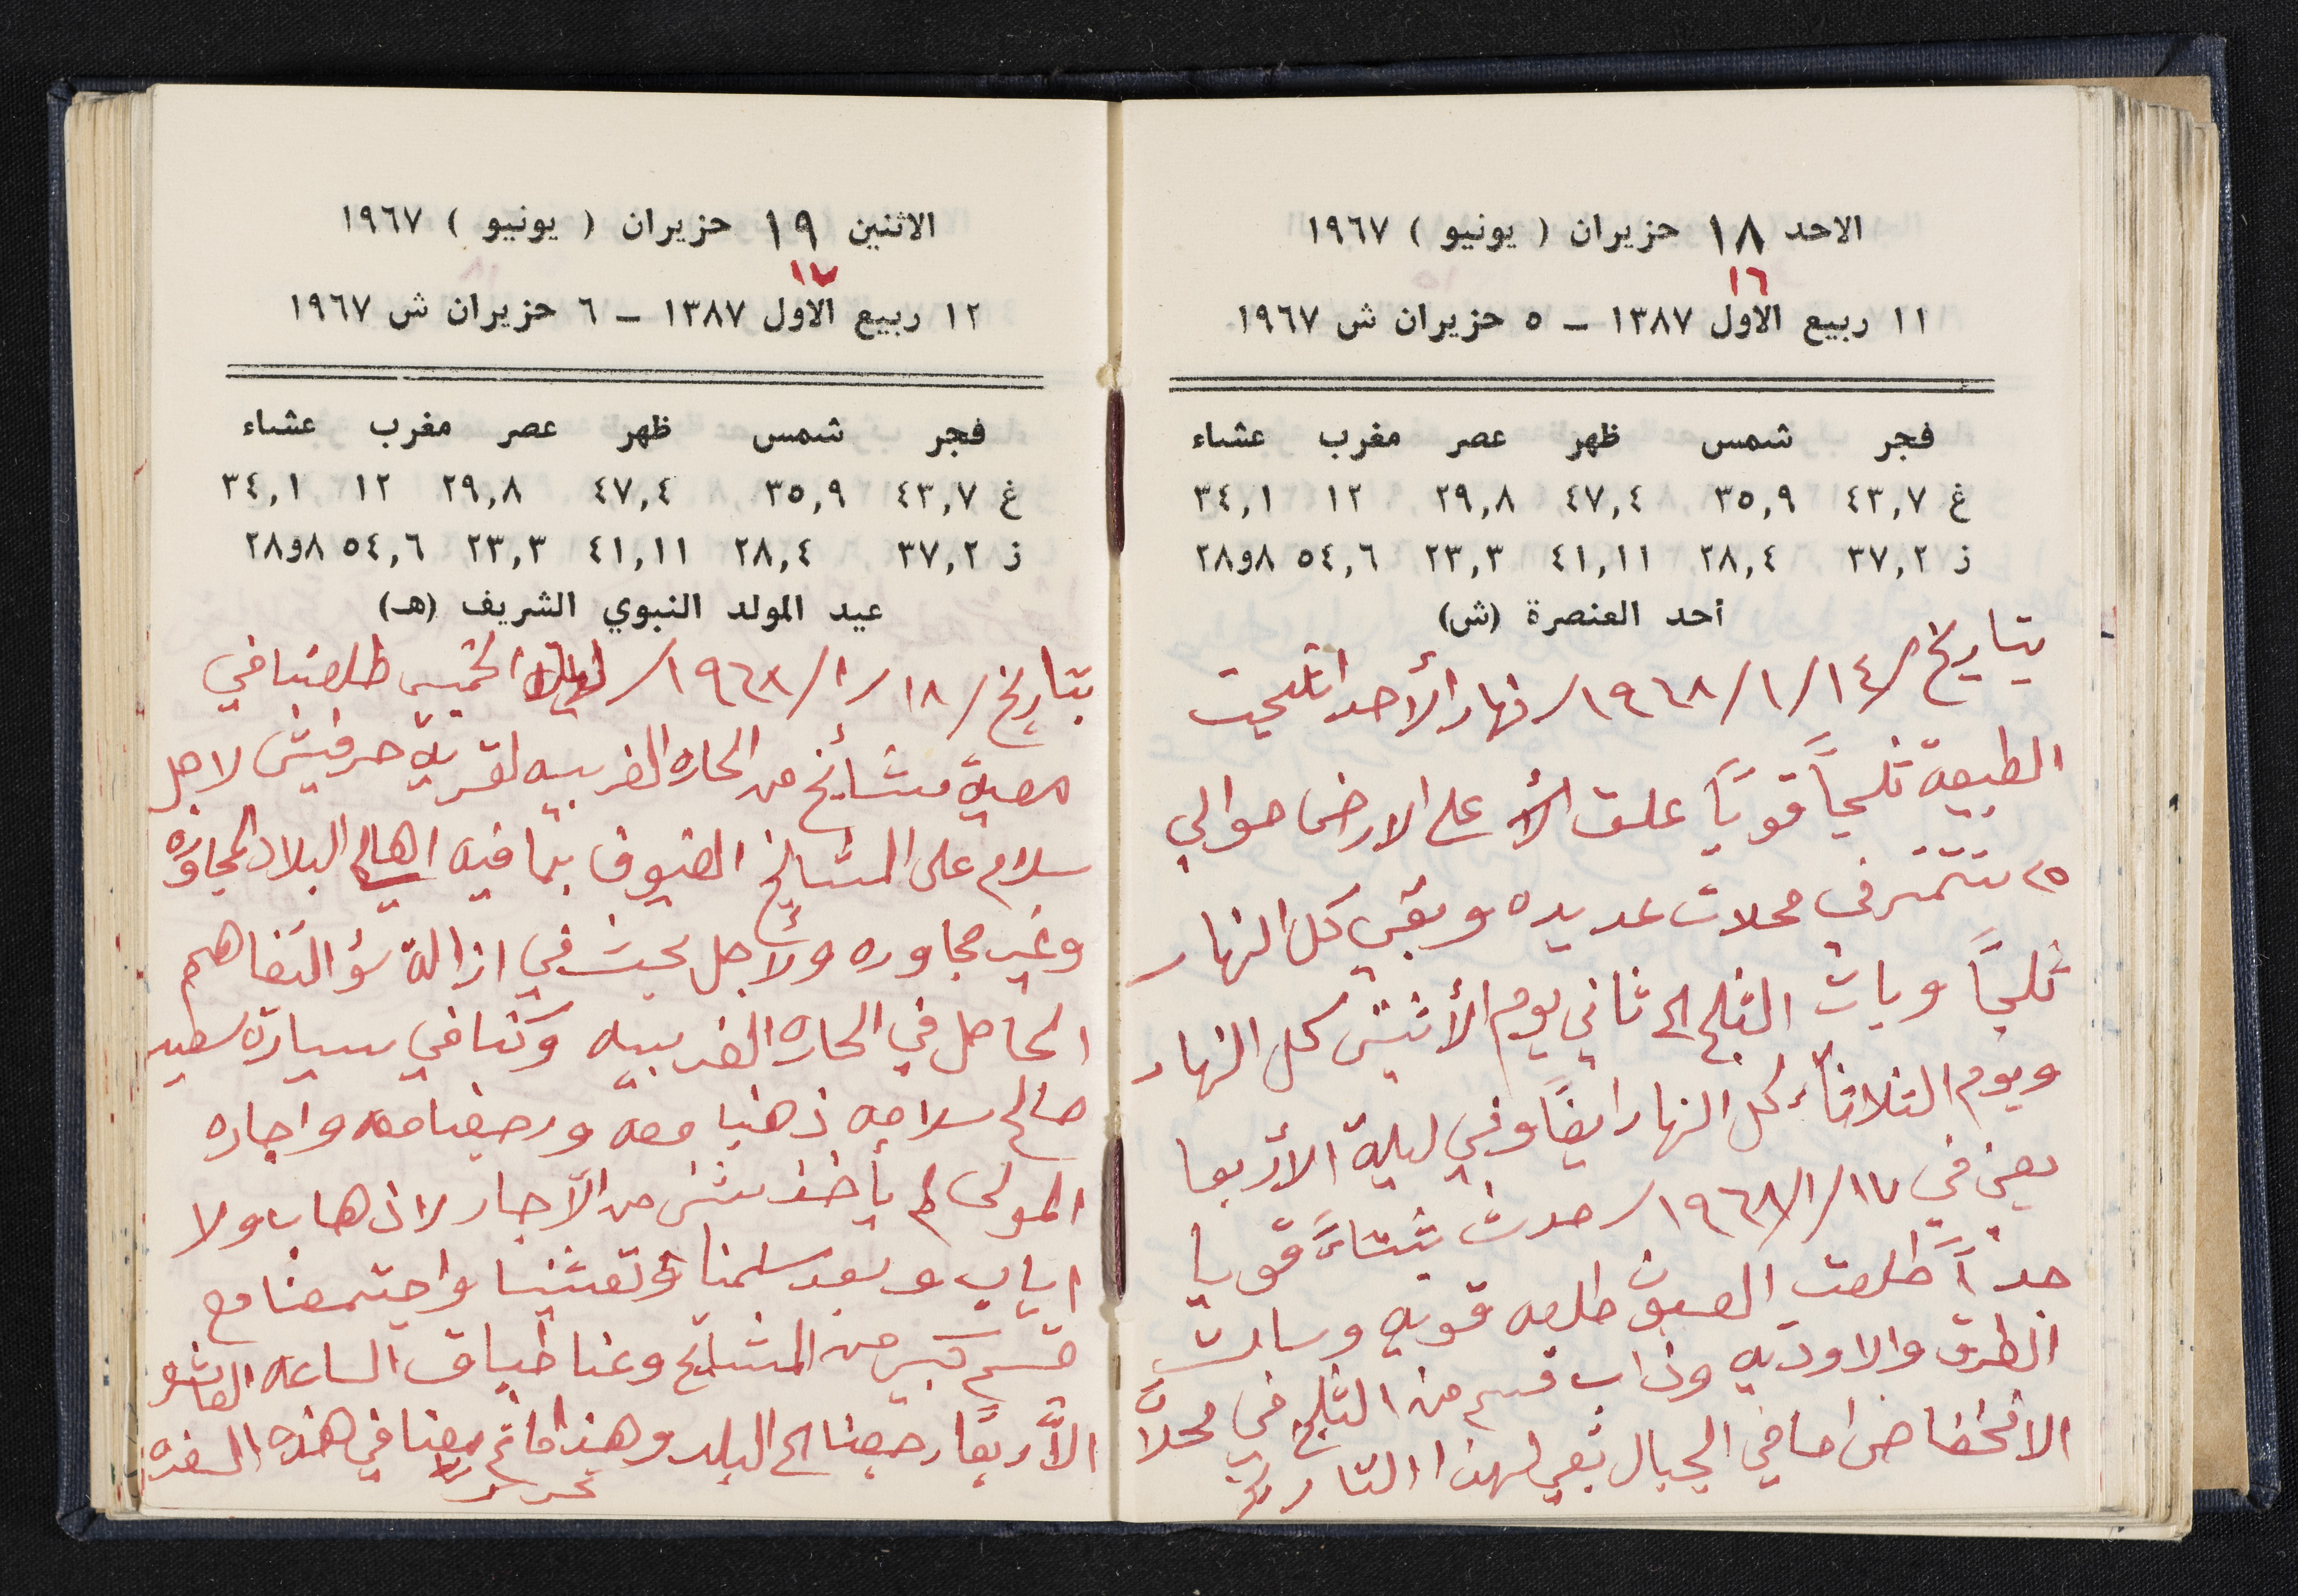 الاحد ١٨ حزيران ( يونيو ) ١٩٦٧
١٦
١١ ربيع الاول ١٣٨٧ – ٥ حزيران ش ١٩٦٧
فجر شمس ظهر عصر مغرب عشاء
غ ٤٣,٧ ٣٥,٩ ٤٧,٤ ٢٩,٨ ١٢ ٣٤,١
ز ٣٧,٢ ٢٨,٤ ٤١,١١ ٢٣,٣ ٥٤,٦ ٨و٢٨
أحد العنصرة (ش)
بتاريخ /١٤/١/١٩٦٨/ نهار الأحد اثلجت
الطبيعة ثلجاً قويّاً علت على الارض حوالي
٢٥ سنتمتر في محلات عديده وبقي كل النهار
ثلجاً وبات الثلج الى ثاني يوم الأثنين كل النهار
ويوم الثلاثاء كل النهار ايضاً وفي ليلة الأربعا
يعني في ١٧/١/١٩٦٨/ حدث شتاءً قويا
جداً طلعت العيون طلعه قويه وسالت
الطرق والاوديه وذاب قسم من الثلج في محلاّت
الانخفاض اما في الجبال بقي لهذا التاريخ
الاثنين ١٩ حزيران ( يونيو ) ١٩٦٧
١٧
١٢ ربيع الاول ١٣٨٧ – ٦ حزيران ش ١٩٦٧
فجر شمس ظهر عصر مغرب عشاء
غ ٤٣,٧ ٣٥,٩ ٤٧,٤ ٢٩,٨ ١٢ ٣٤,١
ز ٣٧,٢ ٢٨,٤ ٤١,١١ ٢٣,٣ ٥٤,٦ ٨و٢٨
عيد المولد النبوي الشريف (هـ)
بتاريخ /١٨/١/١٩٦٨/ ليلة الخميس طلعنا في
معية مشائخ من الحاره الغربيه لقرية حرفيش لاجل
سلام على المشايخ الضيوف بما فيه اهالي البلاد المجاوره
وغير مجاوره ولأجل بحث في ازالة سؤ التفاهم
الحاصل في الحاره الغربيه وكنا في سيارة سعيد
صالح سلامه ذهنبا معه ورجعنا معه واجاره
المولى لم يأخذ شئ من الآجار لا ذهاب ولا
اياب وبعد سلمنا وتعشينا واجتمعنا مع
قسم كبير من المشايخ وعنا طباق الساعه العاشره
الاّربعا رجعنا الى البلد وهذا ما تم معنا في هذه السفره
تحريرا